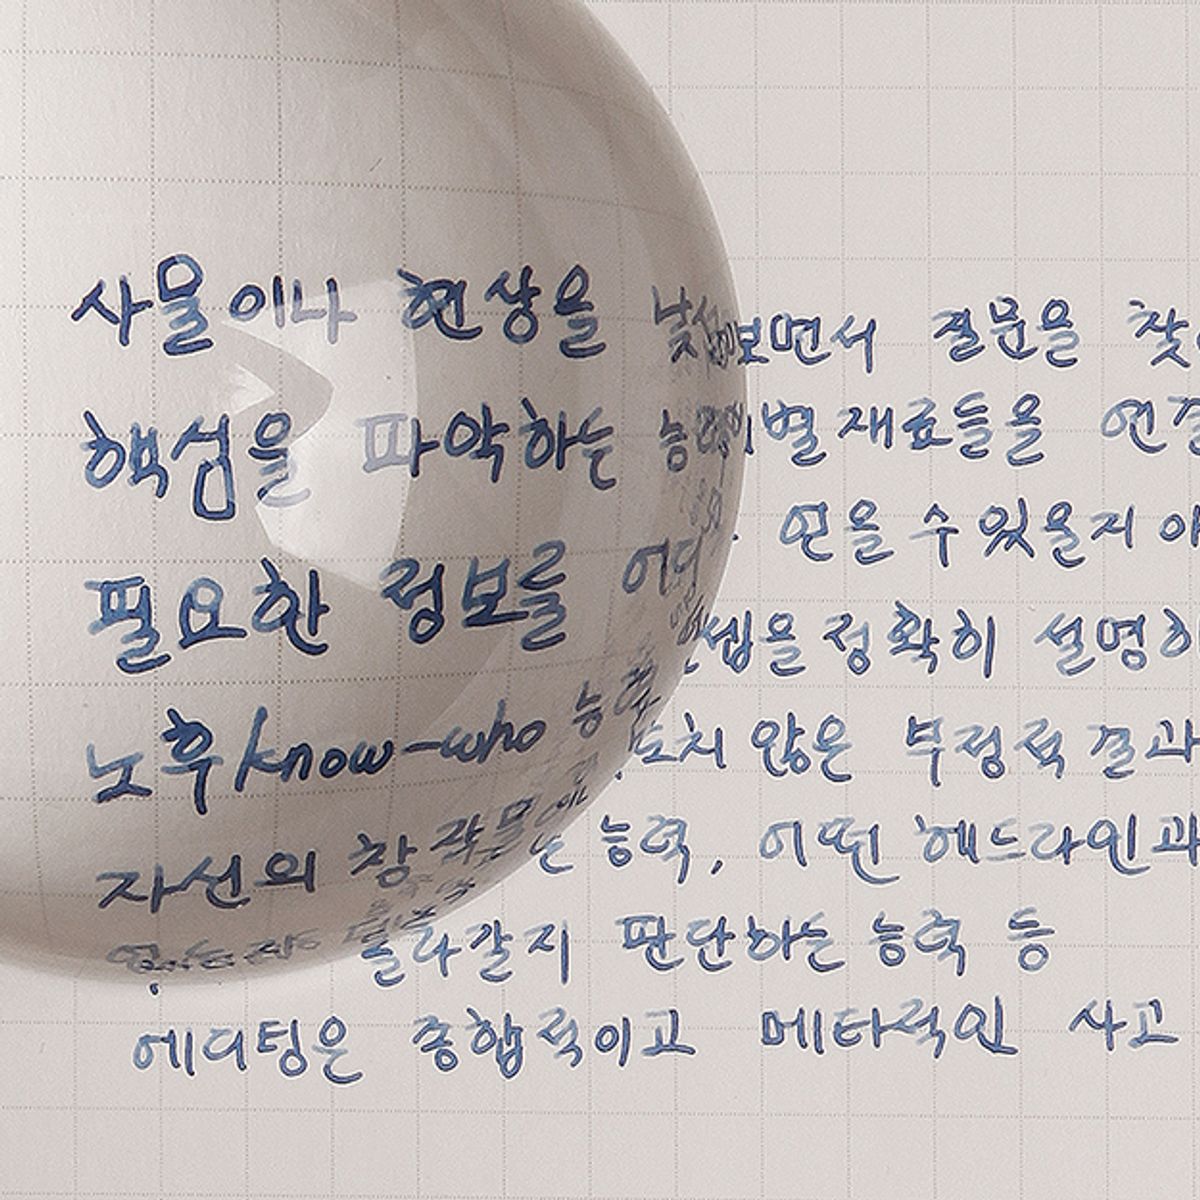 사물이나 현상을 낯설 보면서 질문을 찾
핵심을 파악하는 능력 별 재료들을 연결
필요한 정보를 어디 얻을 수 있을지 아
노후/know-who 능력 셉을 정확히 설명하
자신의 창작물이 도치 않은 부정적 결과
는 능력, 어떤 헤드라인과
올라갈지 판단하는 능력 등
에디팅은 종합적이고 메타적인 사고